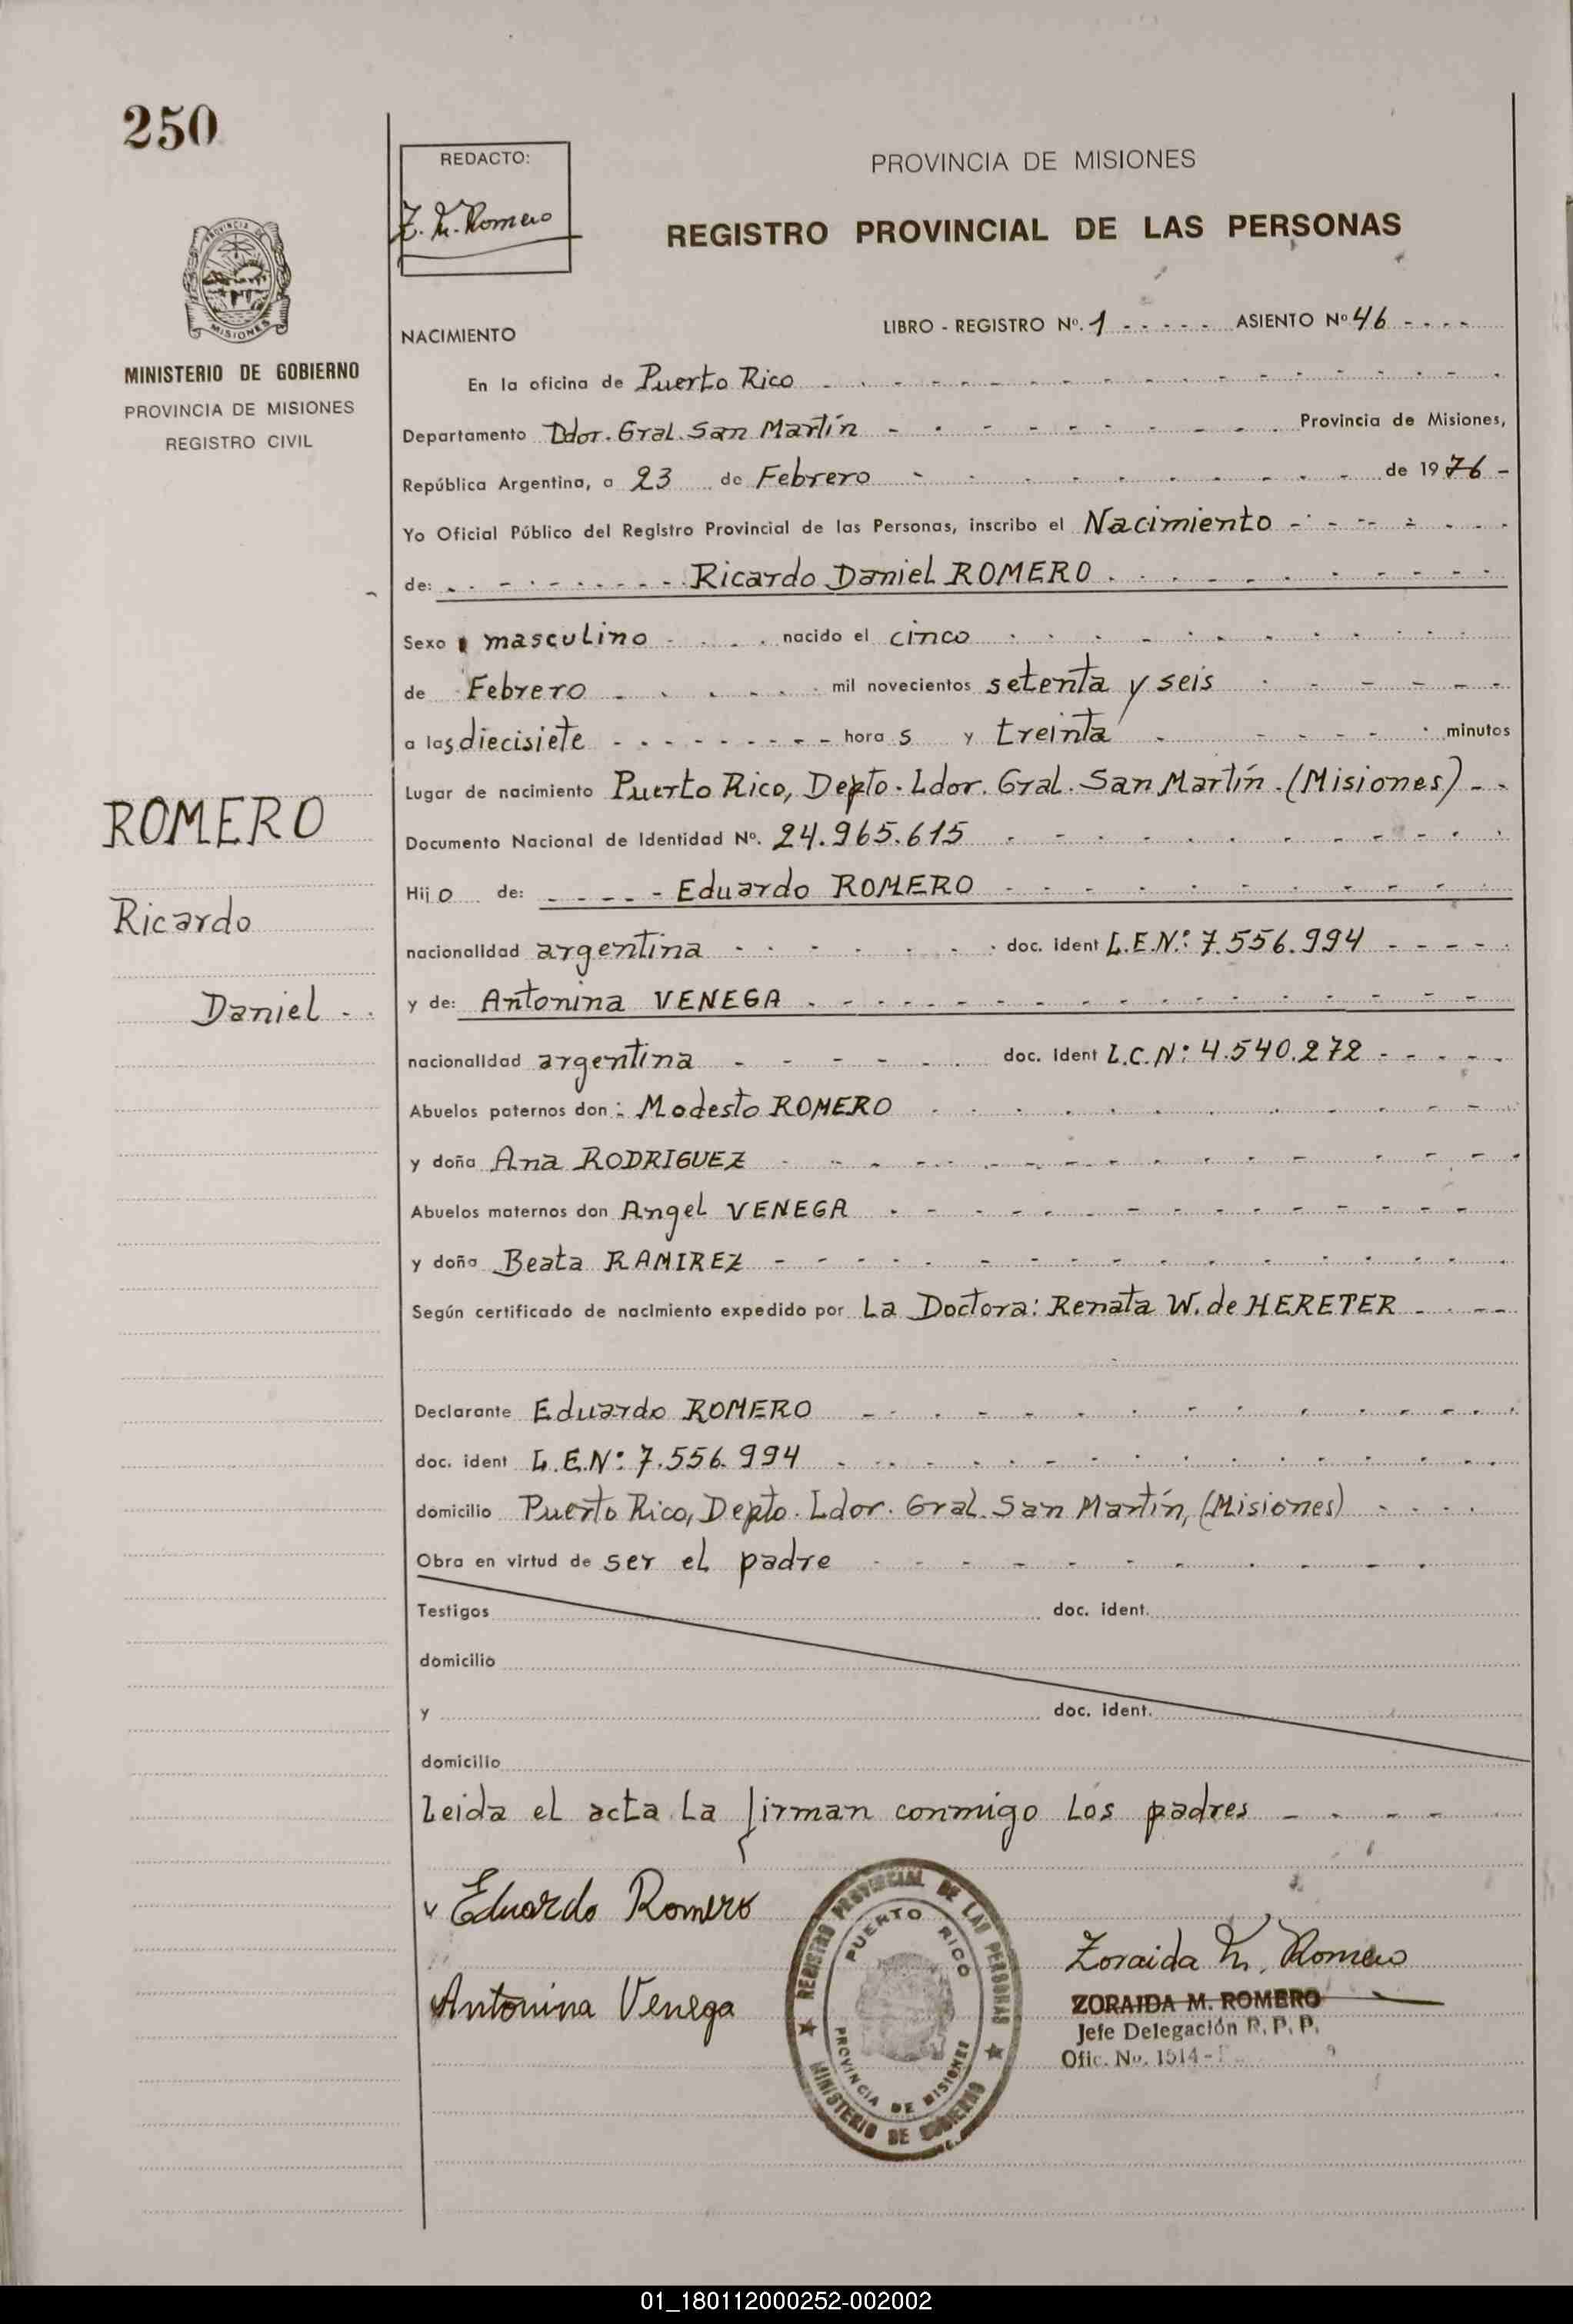 250
REDACTO:
Z. M. Romero
PROVINCIA DE MISIONES
REGISTRO PROVINCIAL DE LAS PERSONAS
PROVINCIA DE
MISIONES
MINISTERIO DE GOBIERNO
PROVINCIA DE MISIONES
REGISTRO CIVIL
NACIMIENTO LIBRO - REGISTRO Nº. 1 - - - - - ASIENTO Nº 46 - - - -
En la oficina de Puerto Rico
Departamento Ldor. Gral. San Martín Provincia de Misiones,
República Argentina, a 23 de Febrero de 1976 -
Yo Oficial Público del Registro Provincial de las Personas, inscribo el Nacimiento
de: Ricardo Daniel ROMERO
Sexo masculino nacido el cinco
de Febrero mil novecientos setenta y seis
a las diecisiete horas y treinta minutos
Lugar de nacimiento Puerto Rico, Depto. Ldor. Gral. San Martín. (Misiones)
Documento Nacional de Identidad Nº. 24.965.615
Hijo de: Eduardo ROMERO
nacionalidad argentina doc. ident L.E.Nº: 7.556.994
y de: Antonina VENEGA
nacionalidad argentina doc. ident L.C.Nº: 4.540.272
Abuelos paternos don: Modesto ROMERO
y doña Ana RODRIGUEZ
Abuelos maternos don Angel VENEGA
y doña Beata RAMIREZ
Según certificado de nacimiento expedido por La Doctora: Renata W. de HERETER
Declarante Eduardo ROMERO
doc. ident L.E.Nº: 7.556.994
domicilio Puerto Rico, Depto. Ldor. Gral. San Martín, (Misiones)
Obra en virtud de ser el padre
Testigos doc. ident.
domicilio
y doc. ident.
domicilio
Leida el acta la firman conmigo los padres
ROMERO
Ricardo
Daniel
v Eduardo Romero
Antonina Venega
REGISTRO PROVINCIAL DE LAS PERSONAS
MINISTERIO DE GOBIERNO
PUERTO RICO
PROVINCIA DE MISIONES
Zoraida M. Romero
ZORAIDA M. ROMERO
Jefe Delegación R. P. P.
Ofic. No. 1514 -
01_180112000252-002002